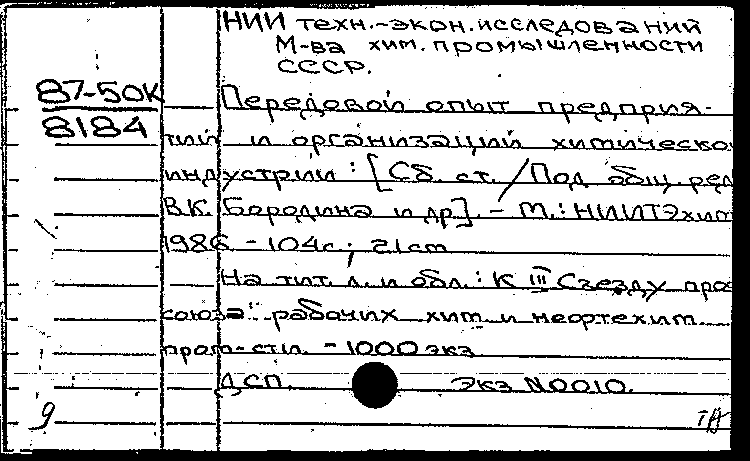 НИИ техн.-экон. исследований
М-ва хим. промышленности
СССР.
87-50К
8184
Передовой опыт предприя-
тий и организаций химической
индустрии : [Сб. ст. / Под общ. ред
В.К. Бородина и др]. - М. : НИИТЭхим
1986 - 104с ; 21 см
На тит. л. и обл. : К III Съезду проф
союза рабочих хим и нефтехим
пром-сти. - 1000 экз
ДСП. Экз N0010.
9